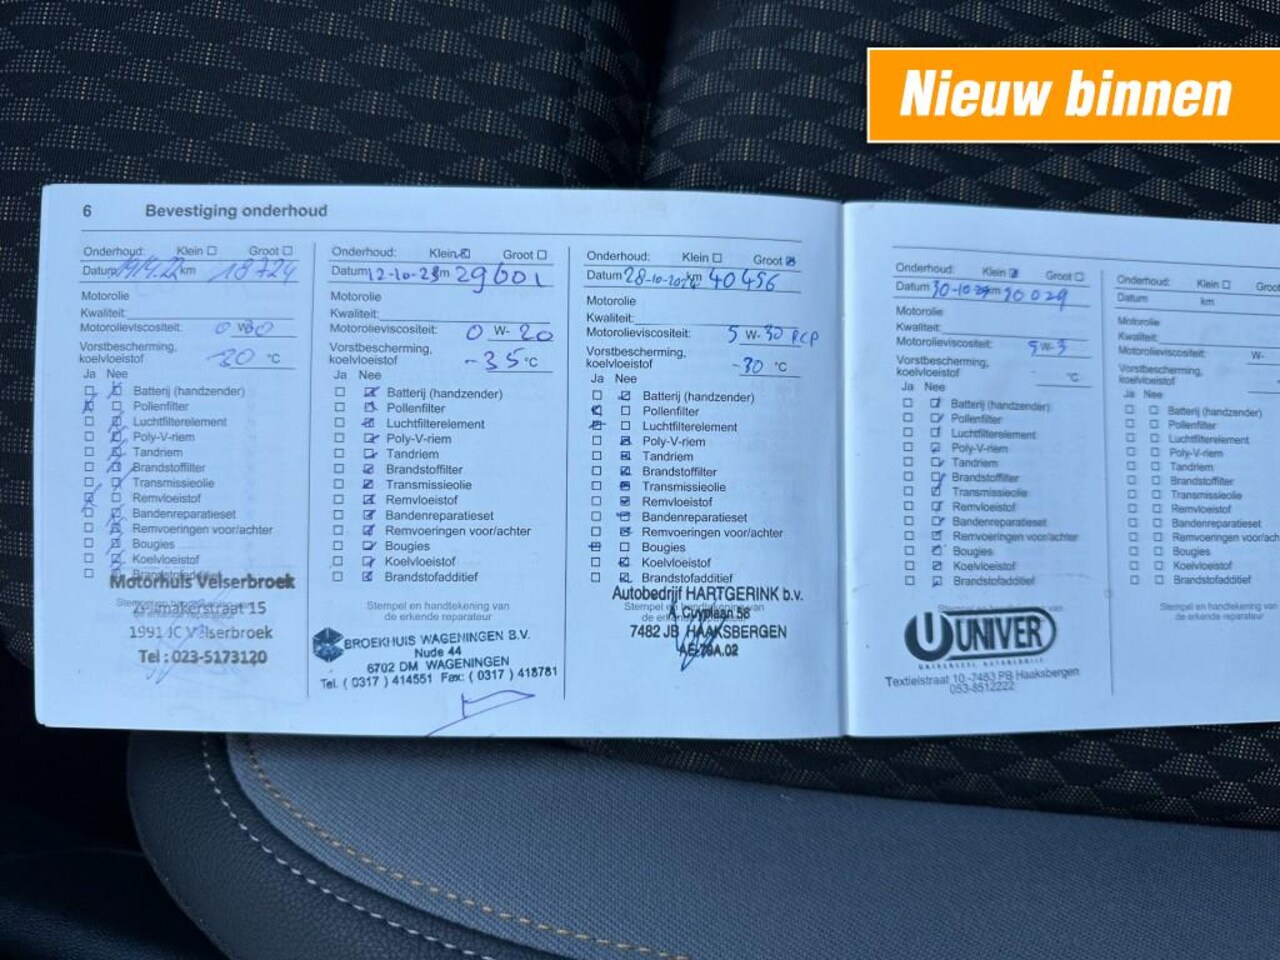 Nieuw binnen
6 Bevestiging onderhoud
Onderhoud: Klein Groot
Datum km 18724
Motorolie
Kwaliteit:
Motorolieviscositeit: 0 W-30
Vorstbescherming, koelvloeistof -30 °C
Ja Nee
Batterij (handzender)
Pollenfilter
Luchtfilterelement
Poly-V-riem
Tandriem
Brandstoffilter
Transmissieolie
Remvloeistof
Bandenreparatieset
Remvoeringen voor/achter
Bougies
Koelvloeistof
Motorhuis Velserbroek
Zadelmakerstraat 15
1991 JC Velserbroek
Tel : 023-5173120
Onderhoud: Klein Groot
Datum 12-10-23 km 29601
Motorolie
Kwaliteit:
Motorolieviscositeit: 0 W- 20
Vorstbescherming,
koelvloeistof -35 °C
Ja Nee
Batterij (handzender)
Pollenfilter
Luchtfilterelement
Poly-V-riem
Tandriem
Brandstoffilter
Transmissieolie
Remvloeistof
Bandenreparatieset
Remvoeringen voor/achter
Bougies
Koelvloeistof
Brandstofadditief
Stempel en handtekening van
de erkende reparateur
BROEKHUIS WAGENINGEN B.V.
Nude 44
6702 DM WAGENINGEN
Tel. ( 0317 ) 414551 Fax: ( 0317 ) 418781
Onderhoud: Klein Groot
Datum 28-10-2024 km 40456
Motorolie
Kwaliteit:
Motorolieviscositeit: 5 W-30 RCP
Vorstbescherming,
koelvloeistof -30 °C
Ja Nee
Batterij (handzender)
Pollenfilter
Luchtfilterelement
Poly-V-riem
Tandriem
Brandstoffilter
Transmissieolie
Remvloeistof
Bandenreparatieset
Remvoeringen voor/achter
Bougies
Koelvloeistof
Brandstofadditief
Autobedrijf HARTGERINK b.v.
A. Cuyplaan 58
7482 JB HAAKSBERGEN
Onderhoud: Klein Groot
Datum km
Motorolie
Kwaliteit:
Motorolieviscositeit: 5 W-3
Vorstbescherming,
koelvloeistof °C
Ja Nee
Batterij (handzender)
Pollenfilter
Luchtfilterelement
Poly-V-riem
Tandriem
Brandstoffilter
Transmissieolie
Remvloeistof
Bandenreparatieset
Remvoeringen voor/achter
Bougies
Koelvloeistof
Brandstofadditief
UNIVER
UNIVERSEEL AUTOBEDRIJF
Textielstraat 10 -7483 PB Haaksbergen
053-8512222
Onderhoud: Klein Groot
Datum km
Motorolie
Kwaliteit:
Motorolieviscositeit: W-
Vorstbescherming,
koelvloeistof
Ja Nee
Batterij (handzender)
Pollenfilter
Luchtfilterelement
Poly-V-riem
Tandriem
Brandstoffilter
Transmissieolie
Remvloeistof
Bandenreparatieset
Remvoeringen voor/ach
Bougies
Koelvloeistof
Brandstofadditief
Stempel en handtekening van
de erkende reparateur